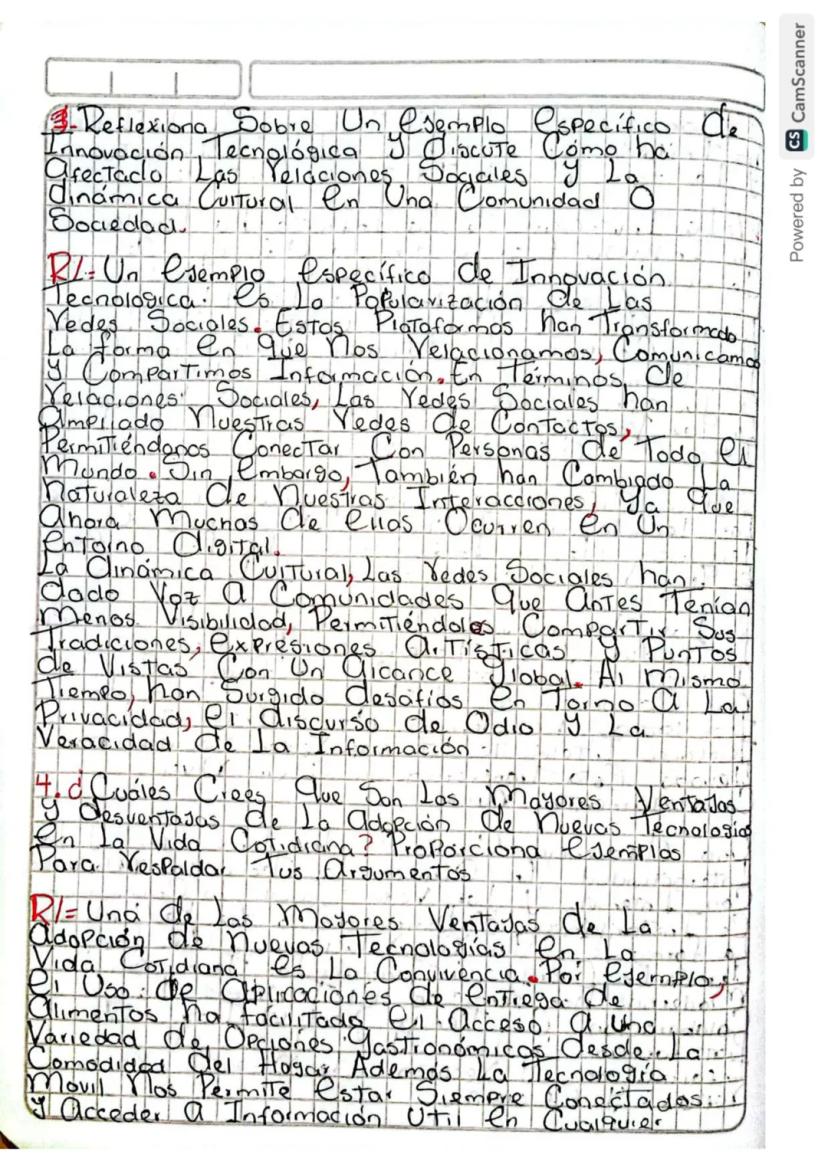 3. Reflexiona Sobre Un ejemplo específico de
Innovación Tecnológica y discute Cómo ha
afectado Las relaciones Sociales y La
dinámica Cultural en Una Comunidad O
Sociedad.
R/= Un ejemplo específico de Innovación
Tecnologica es La Popularización de Las
redes Sociales. Estas Plataformas han Transformado
La forma en que nos relacionamos, Comunicamos
y Compartimos Información. En Términos de
relaciones Sociales, Las redes Sociales han
ampliado nuestras redes de Contactos,
Permitiéndonos Conectar Con Personas de Todo el
Mundo. Sin embargo, También han Cambiado La
naturaleza de nuestras Interacciones, ya que
ahora muchas de ellas Ocurren en Un
entorno digital.
La dinámica Cultural, Las redes Sociales han
dado Voz a Comunidades que antes Tenían
menos Visibilidad, Permitiéndoles Compartir Sus
Tradiciones, expresiones artísticas y Puntos
de Vistas Con Un alcance global. Al mismo
Tiempo, han Surgido desafíos en Torno a La
Privacidad, el discurso de Odio y La
Veracidad de la Información.
4. ¿Cuáles Crees Que Son Las Mayores Ventajas
y desventajas de La adopción de nuevas Tecnologías
en La Vida Cotidiana? Proporciona ejemplos
Para respaldar Tus argumentos
R/= Una de Las Mayores Ventajas de La
adopción de nuevas Tecnologías en La
Vida Cotidiana es La Convivencia. Por ejemplo,
el Uso de aplicaciones de entrega de
alimentos ha facilitado el acceso a una
Variedad de Opciones gastronómicas desde La
Comodidad del Hogar Además La Tecnología
Movil Nos Permite estar Siempre Conectados
y Acceder a Información Util en Cualquier
Powered by CS CamScanner